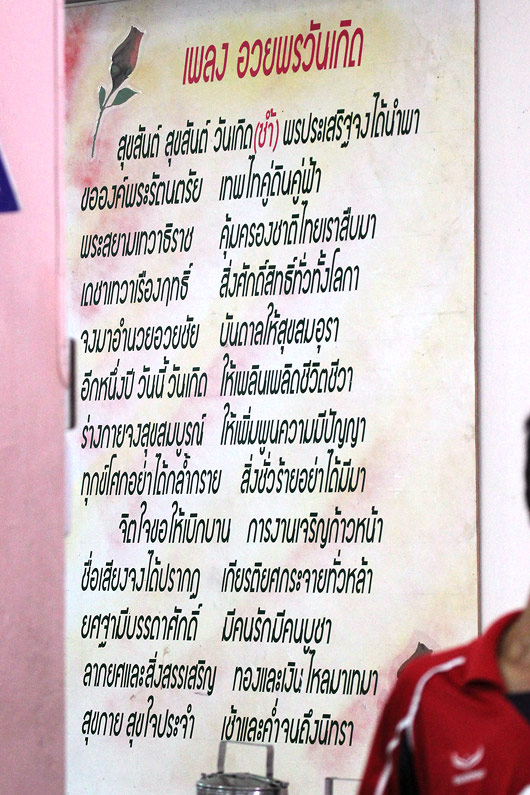 เพลง อวยพรวันเกิด
สุขสันต์ สุขสันต์ วันเกิด(ซ้ำ) พรประเสริฐจงได้นำพา
ขอองค์พระรัตนตรัย เทพไทคู่ดินคู่ฟ้า
พระสยามเทวาธิราช คุ้มครองชาติไทยเราสืบมา
เดชาเทวาเรืองฤทธิ์ สิ่งศักดิ์สิทธิ์ทั่วทั้งโลกา
จงมาอำนวยอวยชัย บันดาลให้สุขสมอุรา
อีกหนึ่งปี วันนี้ วันเกิด ให้เพลินเพลิดชีวิตชีวา
ร่างกายจงสุขสมบูรณ์ ให้เพิ่มพูนความมีปัญญา
ทุกข์โศกอย่าได้กล้ำกราย สิ่งชั่วร้ายอย่าได้มีมา
จิตใจขอให้เบิกบาน การงานเจริญก้าวหน้า
ชื่อเสียงจงได้ปรากฏ เกียรติยศกระจายทั่วหล้า
ยศฐามีบรรดาศักดิ์ มีคนรักมีคนบูชา
ลาภยศและสิ่งสรรเสริญ ทองและเงินไหลมาเทมา
สุขกาย สุขใจประจำ เช้าและค่ำจนถึงนิทรา